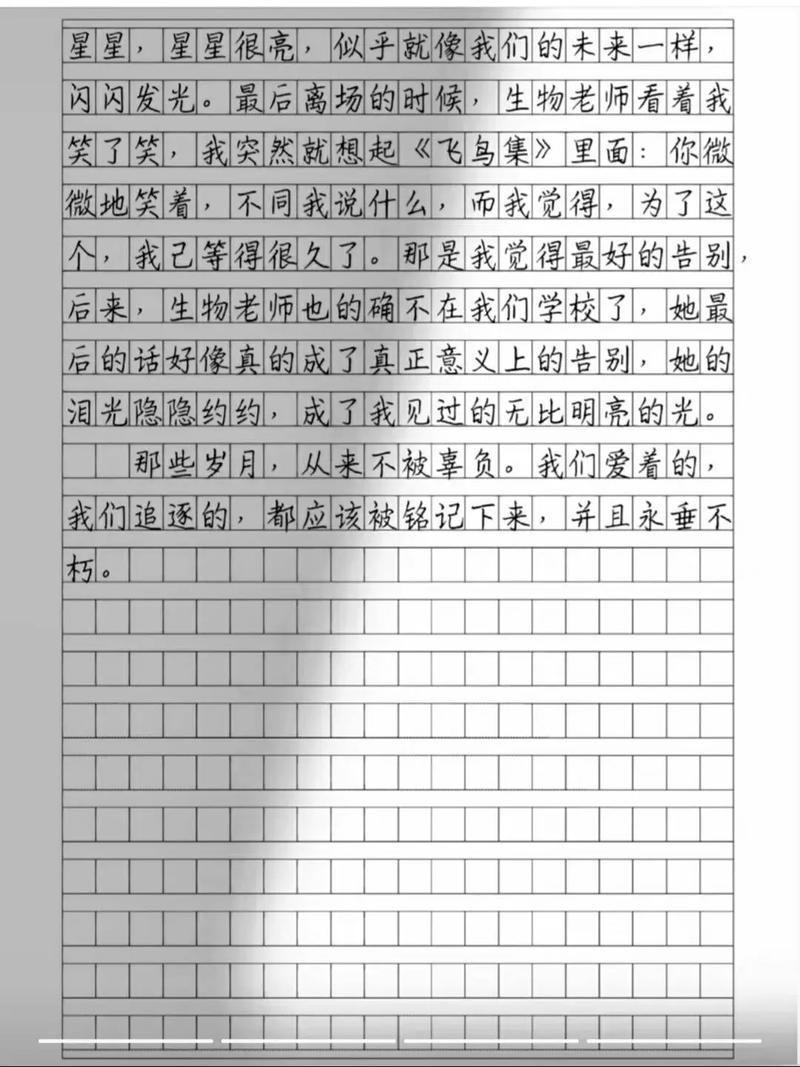 星星，星星很亮，似乎就像我们的未来一样，
闪闪发光。最后离场的时候，生物老师看着我
笑了笑，我突然就想起《飞鸟集》里面：你微
微地笑着，不同我说什么，而我觉得，为了这
个，我已等得很久了。那是我觉得最好的告别，
后来，生物老师也的确不在我们学校了，她最
后的话好像真的成了真正意义上的告别，她的
泪光隐隐约约，成了我见过的无比明亮的光。
那些岁月，从来不被辜负。我们爱着的，
我们追逐的，都应该被铭记下来，并且永垂不
朽。